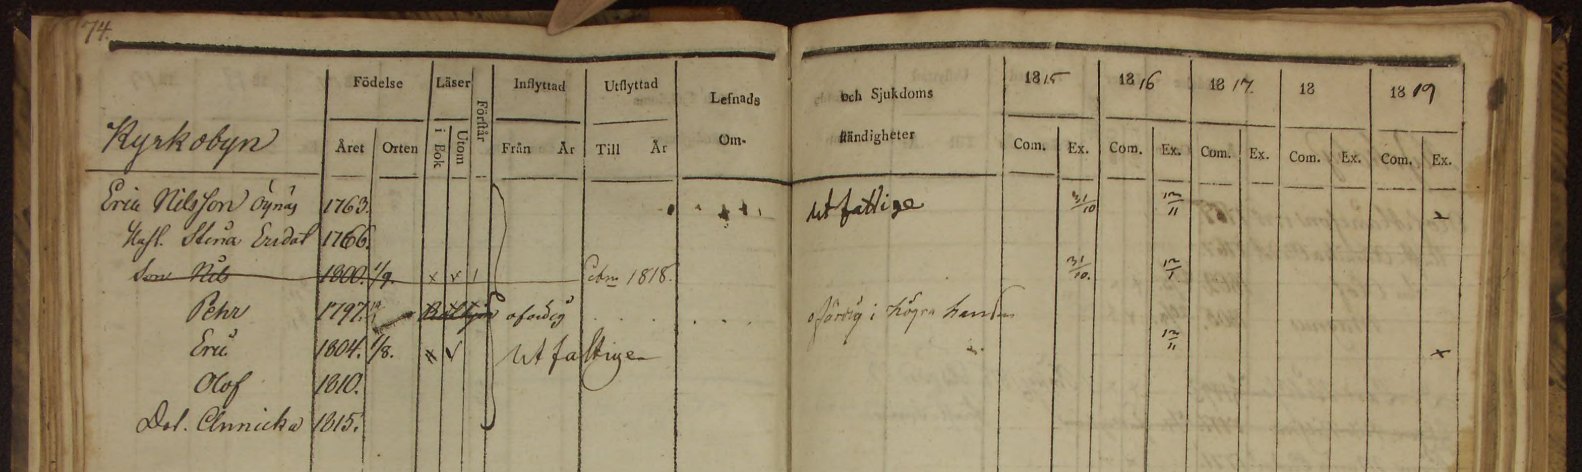 74.
Födelse Läser Förstår Inflyttad Utflyttad Lefnads och Sjukdoms 1815 1816 1817. 18 1819
Kyrkobyn Året Orten i Bok Utom Från År Till År Om- ständigheter Com. Ex. Com. Ex. Com. Ex. Com. Ex. Com. Ex.
Eric Nilsson Öynäs 1763. utfattige 31/10 12/11
Hust. Stina Ersdot 1766.
Son Nils 1800. 1/9. x x 1 1818. 31/10. 12/11
Pehr 1797. ofördig ofärdig i högra handen
Eric 1804. 1/8. Utfattige 12/11 x
Olof 1810.
Dot. Annicka 1815.